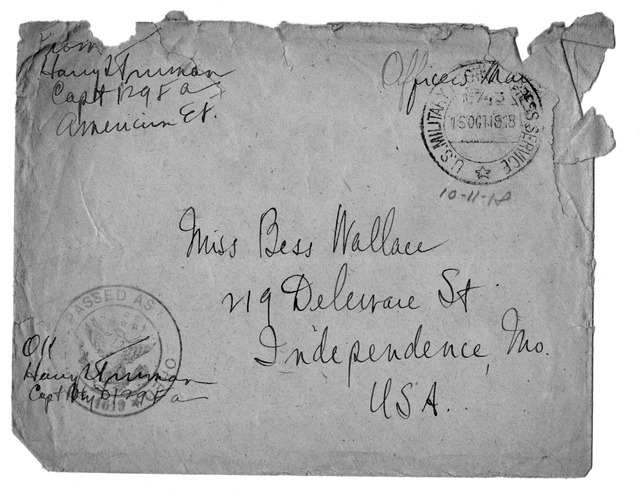 From
Harry S Truman
Capt 129 F a
American E F.
Officers Mail
U.S. MILITARY EXPRESS SERVICE
743
15OCT1918
10-11-18
Miss Bess Wallace
219 Deleware St
Independence, Mo.
USA.
PASSED AS
OK
Harry S Truman
Capt Bty D 129 F a